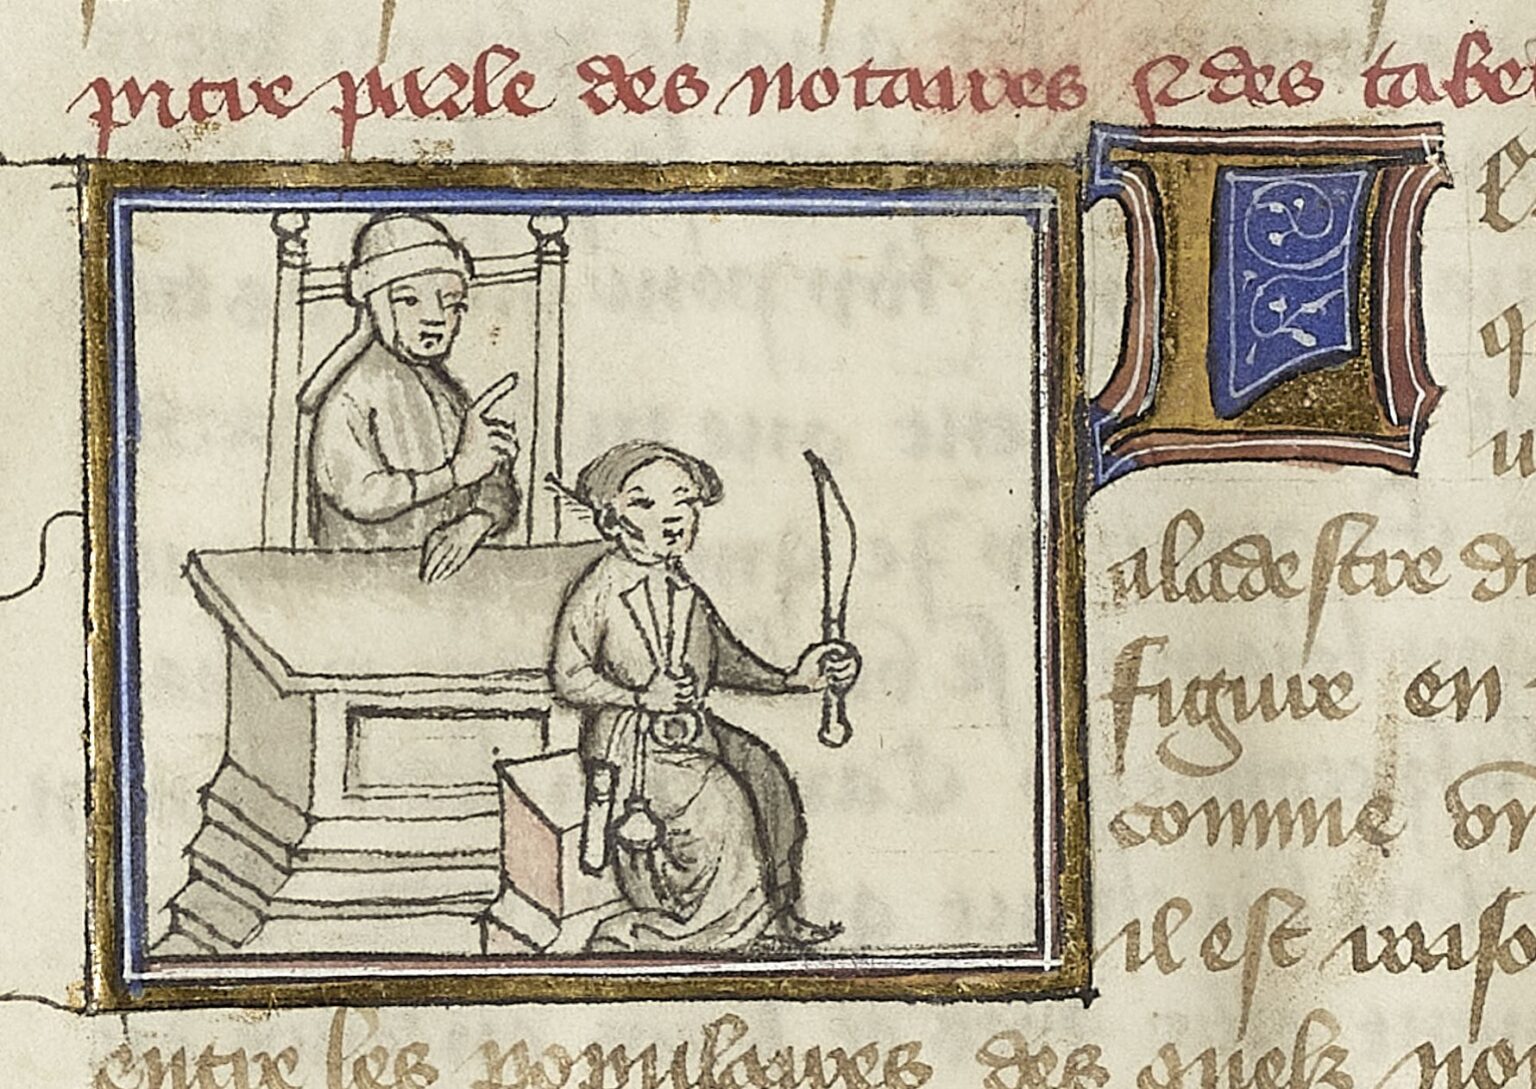 pitre parle des notaires & des tabel
A
q
u
a la destre du
figure en
comme vn
il est raiso
entre les populaires des quelz no